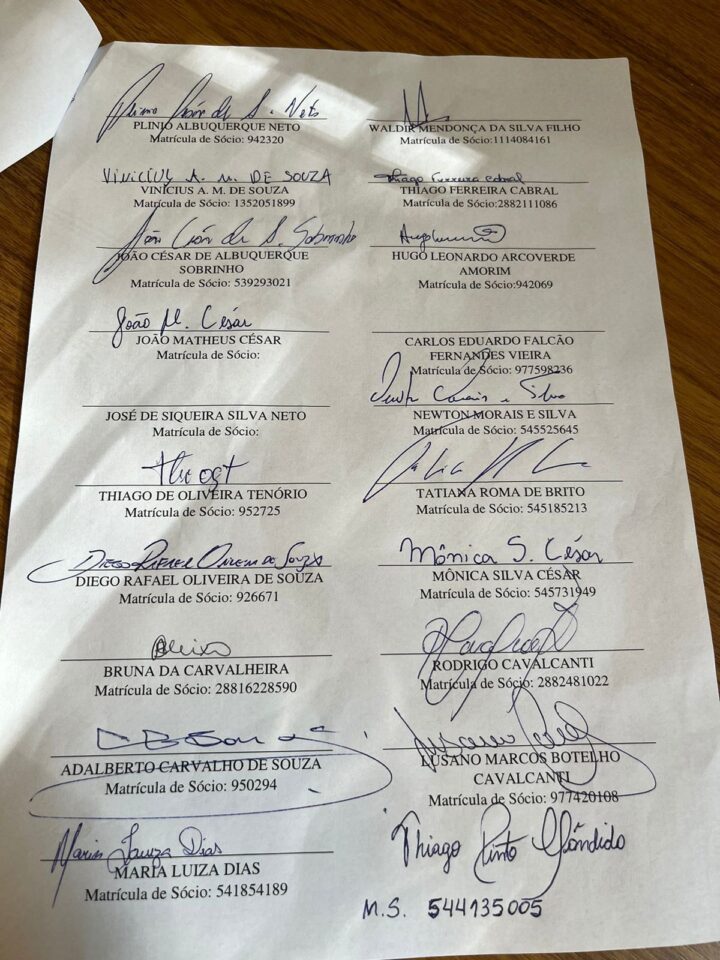 Plinio César de S. Neto
PLINIO ALBUQUERQUE NETO
Matrícula de Sócio: 942320
VINICIUS A. M. DE SOUZA
VINICIUS A. M. DE SOUZA
Matrícula de Sócio: 1352051899
João César de S. Sobrinho
JOÃO CÉSAR DE ALBUQUERQUE
SOBRINHO
Matrícula de Sócio: 539293021
João M. César
JOÃO MATHEUS CÉSAR
Matrícula de Sócio:
JOSÉ DE SIQUEIRA SILVA NETO
Matrícula de Sócio:
THIAGO DE OLIVEIRA TENÓRIO
Matrícula de Sócio: 952725
DIEGO RAFAEL OLIVEIRA DE SOUZA
DIEGO RAFAEL OLIVEIRA DE SOUZA
Matrícula de Sócio: 926671
BRUNA DA CARVALHEIRA
Matrícula de Sócio: 28816228590
ADALBERTO CARVALHO DE SOUZA
Matrícula de Sócio: 950294
Maria Luiza Dias
MARIA LUIZA DIAS
Matrícula de Sócio: 541854189
WALDIR MENDONÇA DA SILVA FILHO
Matrícula de Sócio:1114084161
Thiago Ferreira Cabral
THIAGO FERREIRA CABRAL
Matrícula de Sócio:2882111086
HUGO LEONARDO ARCOVERDE
AMORIM
Matrícula de Sócio:942069
CARLOS EDUARDO FALCÃO
FERNANDES VIEIRA
Matrícula de Sócio: 977598236
Newton Morais e Silva
NEWTON MORAIS E SILVA
Matrícula de Sócio: 545525645
TATIANA ROMA DE BRITO
Matrícula de Sócio: 545185213
Mônica S. César
MÔNICA SILVA CÉSAR
Matrícula de Sócio: 545731949
RODRIGO CAVALCANTI
Matrícula de Sócio: 2882481022
LUSANO MARCOS BOTELHO
CAVALCANTI
Matrícula de Sócio: 977420108
Thiago Pinto Cândido
M.S. 544135005